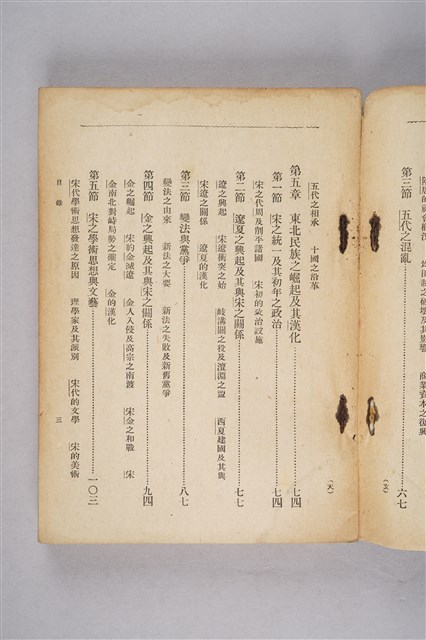 商業資本之復興
第三節 五代之混亂……六七
五代之相承 十國之沿革
第五章 東北民族之崛起及其漢化……七四
第一節 宋之統一及其初年之政治……七四
宋之代周及削平諸國 宋初的政治設施
第二節 遼夏之興起及其與宋之關係……七七
遼之興起 宋遼衝突之始 岐溝關之役及澶淵之盟 西夏建國及其與
宋遼之關係 遼夏的漢化
第三節 變法與黨爭……八七
變法之由來 新法之大要 新法之失敗及新舊黨爭
第四節 金之興起及其與宋之關係……九四
金之崛起 宋約金滅遼 金人入侵及高宗之南渡 宋金之和戰 宋
金南北對峙局勢之確定 金的漢化
第五節 宋之學術思想與文藝……一〇三
宋代學術思想發達之原因 理學家及其派別 宋代的文學 宋的美術
目錄 三